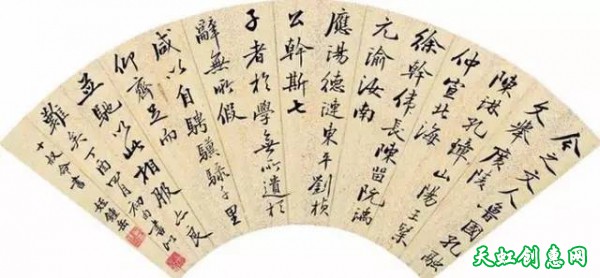 今之文人魯國孔融
文舉廣陵
陳琳孔璋山陽王粲
仲宣北海
徐幹偉長陳留阮瑀
元瑜汝南
應瑒德璉東平劉楨
公幹斯七
子者於學無所遺於
辭無所假
咸以自騁驥騄千里
仰齊足而
並馳以此相服亦良
難矣丁酉四月初旬書以
十叔命書
天虹创惠网